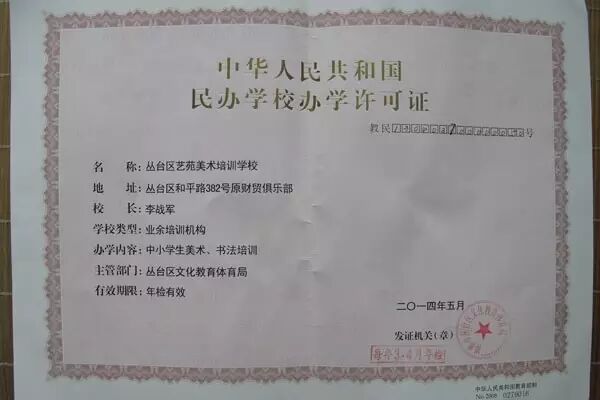 中华人民共和国
民办学校办学许可证
教民 号
名 称：丛台区艺苑美术培训学校
地 址：丛台区和平路382号原财贸俱乐部
校 长：李战军
学校类型：业余培训机构
办学内容：中小学生美术、书法培训
主管部门：丛台区文化教育体育局
有效期限：年检有效
二〇一四年五月
发证机关（章）
中华人民共和国教育部制